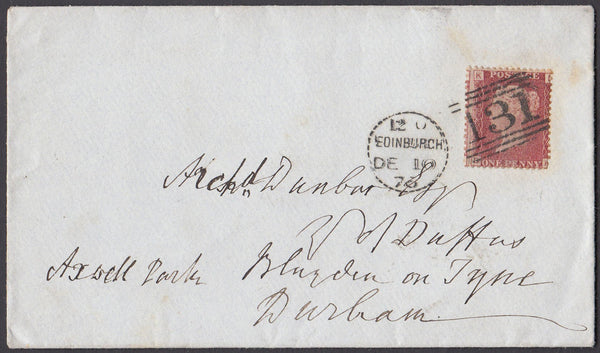 POSTAGE
131
ONE PENNY
EDINBURGH
DE 10
78
Archd Dunbar Esq
of Duffus
Axwell Park Blaydon on Tyne
Durham